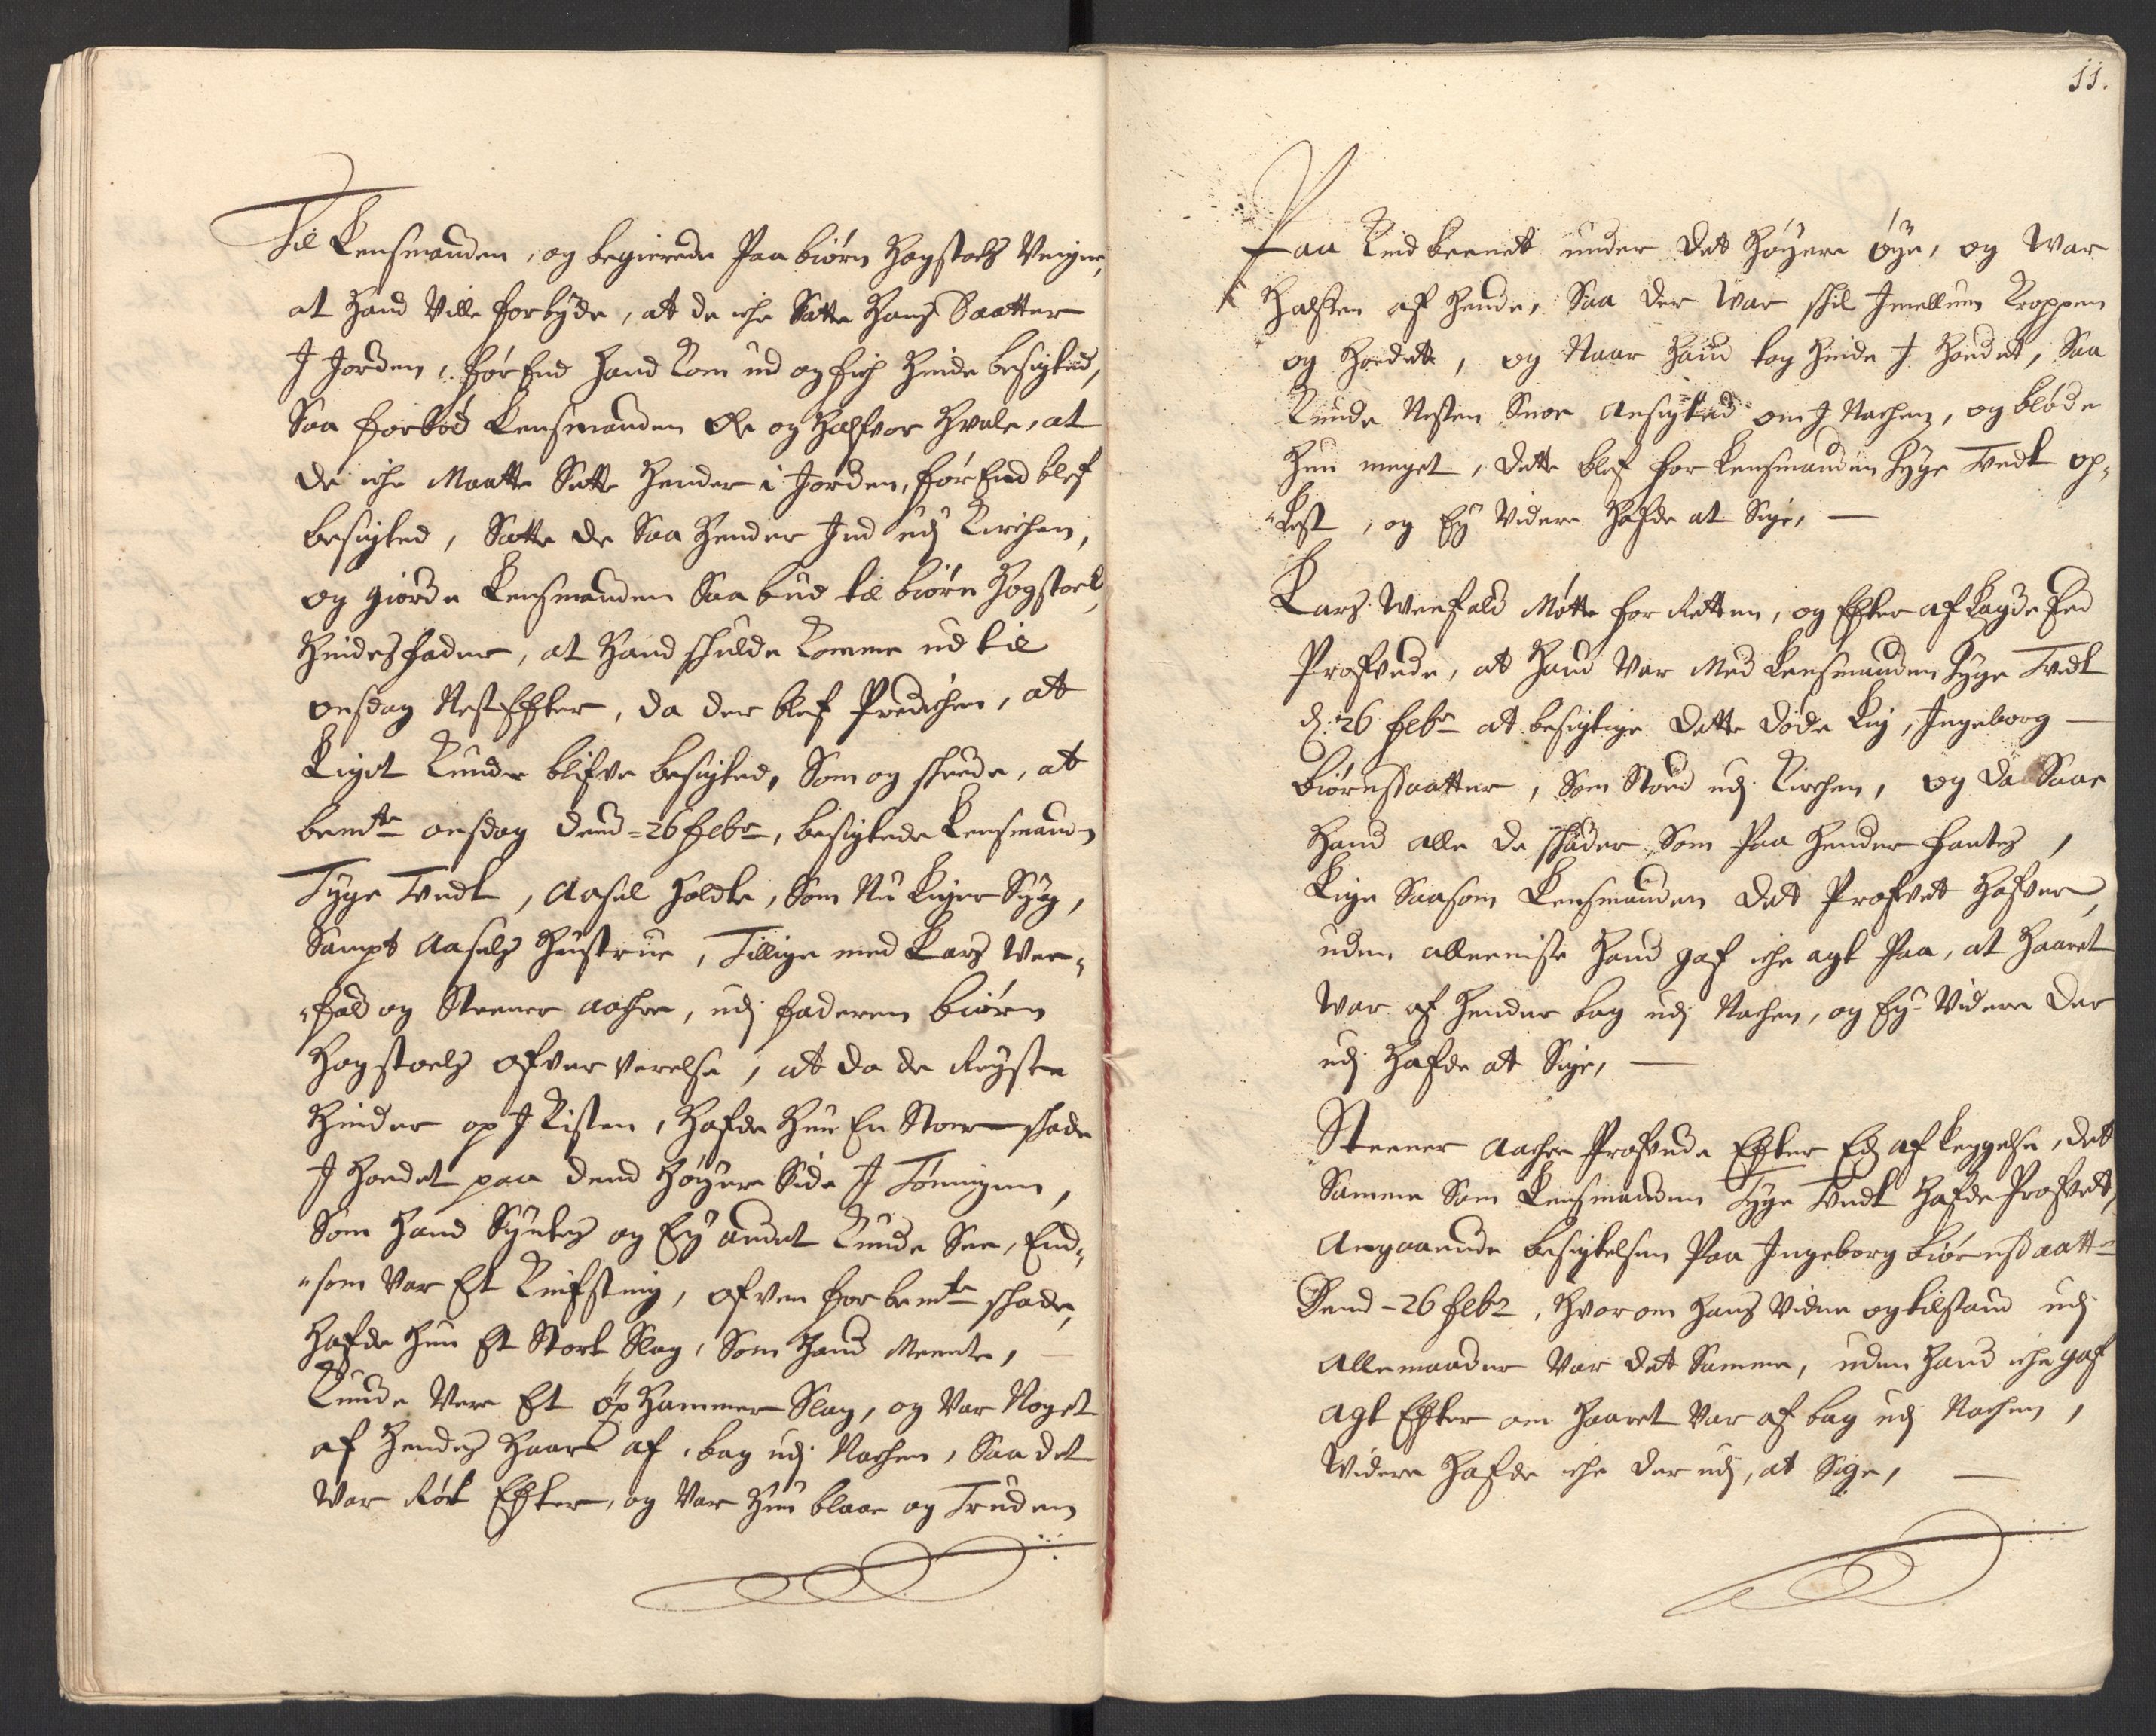 Til Lensmanden, og begierede Paa biørn Hogstoels Veigne,
at Hand Ville forbyde, at de iche Satte Hans Daatter
J Jorden, før End Hand Kom ud og fich Hinde besigted,
Saa forbød Lensmanden Ole og Halfvor Hvale, at
de iche Maatte Sette Hender i Jorden, før End blef
besigted, Satte de Saa Hender Ind udj Kirchen,
og giorde Lensmanden Saa bud til biørn Hogstoel,
Hindes fader, at Hand schulde Komme ud til
onsdag Nest Effter, da der blef Predichen, at
Liget Kunde blifve besigted, Som og scheede, at
bemte onsdag dend = 26 febr, besigtede Lensmanden
Tyge Tvedt, Aasel Holdte, Som Nu Liger Syg,
Sampt Aasels Hustrue, Tillige med Lars Wee-
"fald og Steener Aachre, udj faderen biørn
Hogstoels ofververelse, at da de Reyste
Hinder op J Kisten, Hafde Hun En Stoer schade
J Hoedet paa dend Høyere Side J Tønnigen,
Som Hand Syntes og Ey andet Kunde See, End-
"som Var Et Knifsting, ofven for bemte schade,
Hafde Hun Et Stort Slag, Som Hand Meente, —
Kunde Vere Et øx Hammer Slag, og Var Noget
af Hendes Haar af, bag udj Nachen, Saa det
War Røt Effter, og Var Hun blaae og Truden
11.
Paa Kindbeenet under det Høyere øye, og War
Halsen af Hende, Saa der War schil Jmellum Kroppen
og Hoedet, og Naar Hand tog Hinde J Hoedet, Saa
Kunde Nesten Snoe Ansigted om J Nachen, og blødde
Hun meget, dette blef for Lensmanden Tyge Tvedt op-
"Lest, og Ey Videre Hafde at Sige, —
Lars Weefald Møtte for Retten, og Effter aflagde Eed
Profvede, at Hand Var Med Lensmanden Tyge Tvedt
d: 26 febr at besigtige dette døde Liig, Ingeborg —
biørnsdaatter, Som Stoed udj Kirchen, og da Saae
Hand alle de schader, Som Paa Hender fantes,
Lige Saasom Lensmanden det Profvet Hafver,
uden alleeniste Hand gaf iche agt Paa, at Haaret
War af Hender bag udj Nachen, og Ey Videre der
udj Hafde at Sige, —
Steener Aachre Profvede Effter Eds afleggelse, det
Samme Som Lensmanden Tyge Tvedt Hafde Profvet,
Angaaende besigtelsen Paa Ingeborg biørnsdaatt=
Dend = 26 febr, Hvorom Hans Vidne og tilstand udj
Allemaader Var det Samme, uden Hand iche gaf
Agt Effter om Haaret Var af bag udj Nachen,
Widere Hafde iche der udj, at Sige, —